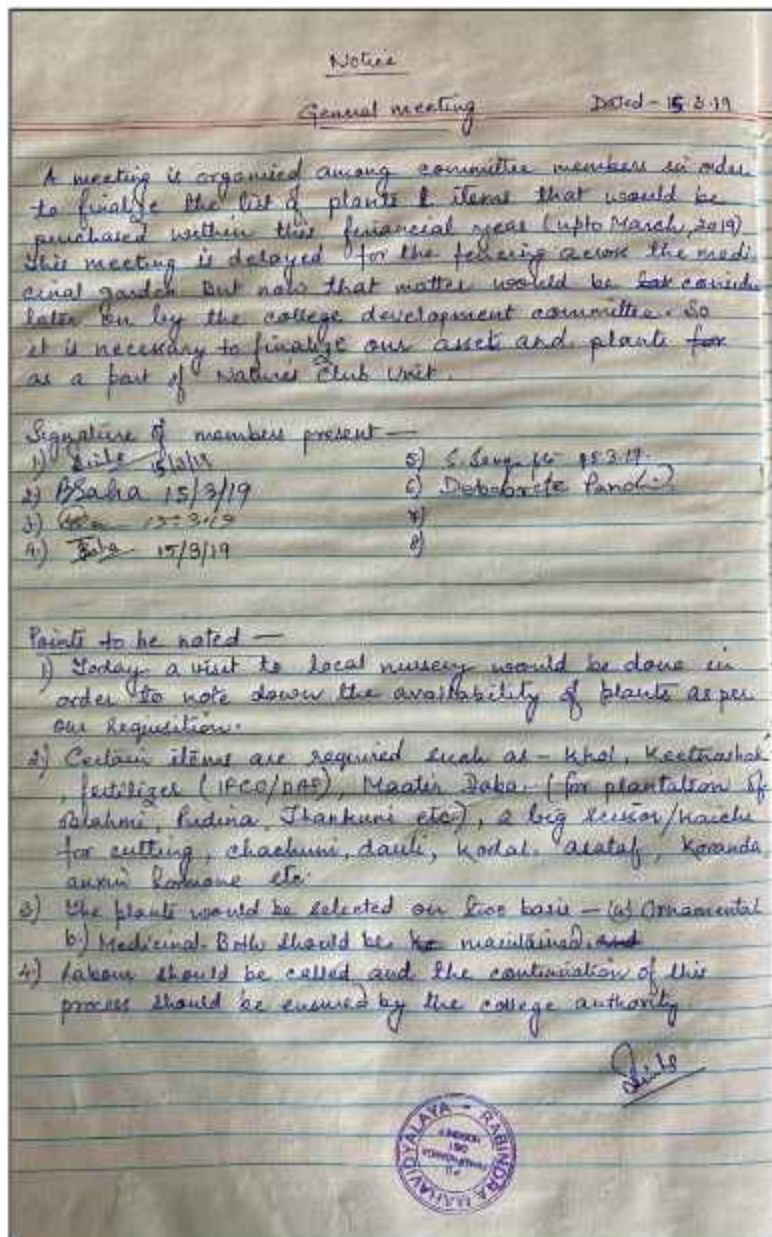 Notice
General meeting Dated - 15.3.19
A meeting is organised among committee members in order
to finalize the list of plants & items that would be
purchased within this financial year (upto March, 2019)
This meeting is delayed for the fencing across the medi
cinal garden But now that matter would be
later on by the college development committee. So
it is necessary to finalize our assets and plants for
as a part of Natures Club Unit.
Signature of members present —
1) 15/3/19
2) BSaha 15/3/19
3) 15.3.19
4) Saha 15/3/19
5) 15.3.19.
6) Debobrata
7)
8)
Points to be noted —
1) Today a visit to local nursery would be done in
order to note down the availability of plants as per
our requisition.
2) Certain items are required such as - Khol, Keetnashak
, fertilizer (IFCO/DAP), Maatir Daba - (for plantation of
Brahmi, Pudina, Thankuni etc), a big scissor/Kaichi
for cutting, chachuni, dauli, Kodal, Koranda,
etc.
3) The plants would be selected on two basis — (a) Ornamental
b.) Medicinal. Both should be maintained. and
4) Labour should be called and the continuation of this
process should be ensured by the college authority.
RABINDRA MAHAVIDYALAYA